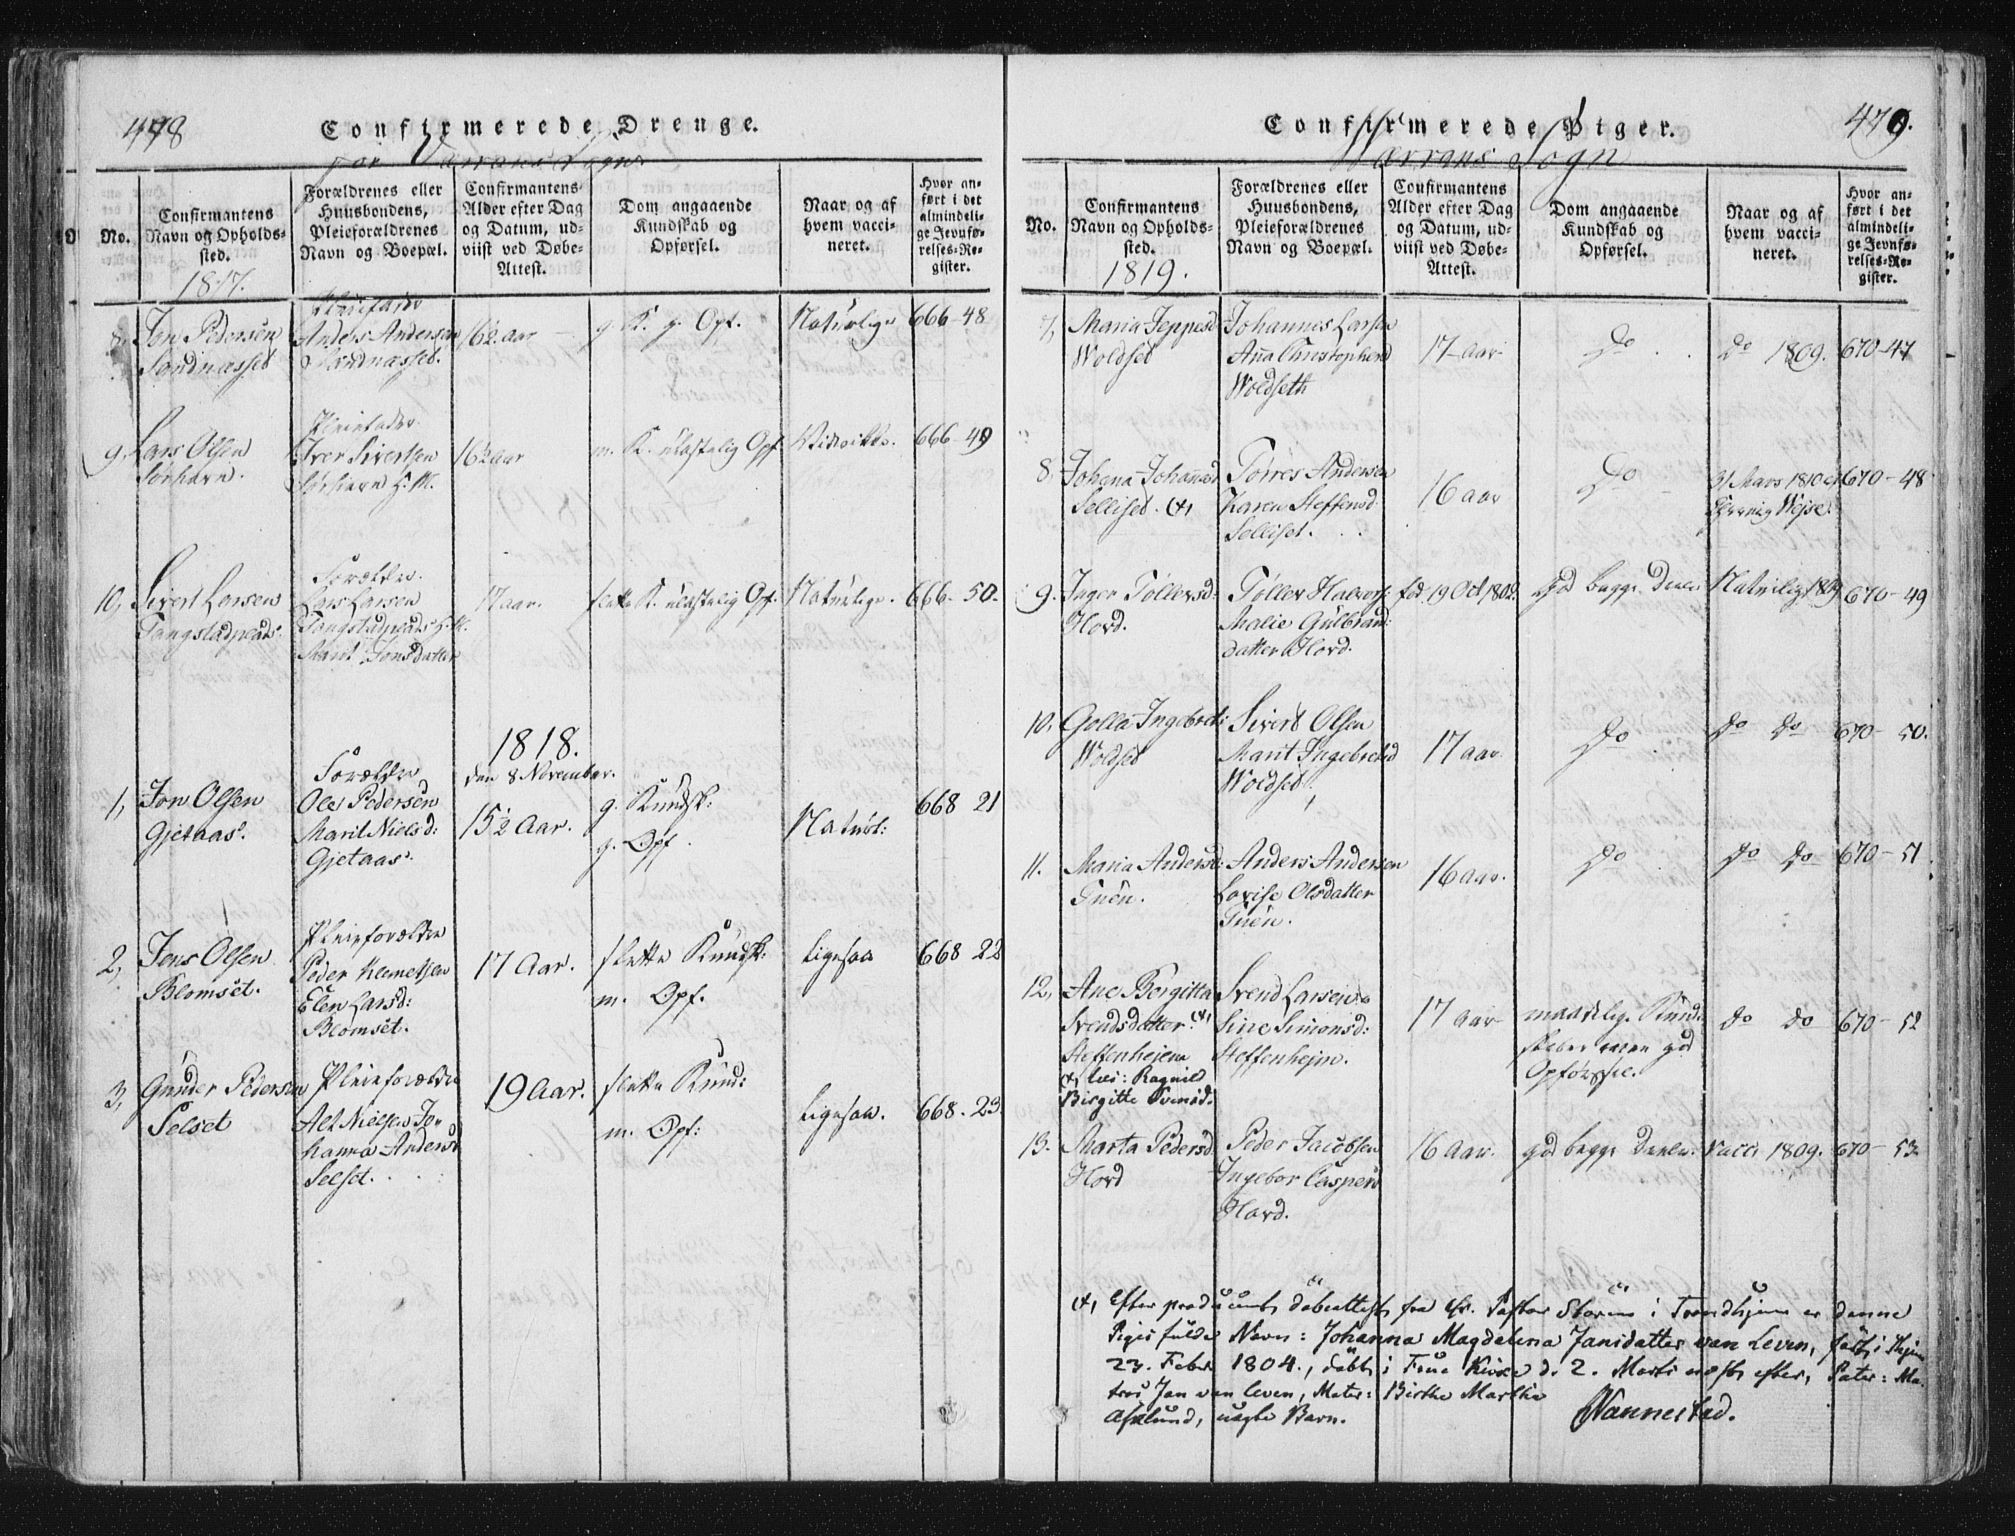 478
Confirmerede Drenge.
for Værrans Sogn
No.
Confirmantens
Navn og Opholds-
sted.
1817.
Forældrenes eller
Huusbondens,
Pleieforældrenes
Navn og Boepæl.
Confirmantens
Alder efter Dag
og Datum, ud-
viist ved Døbe-
Attest.
Dom angaaende
Kundskab og
Opførsel.
Naar og af
hvem vacci-
neret.
Hvor an-
ført i det
almindeli-
ge Jevnfø-
relses-Re-
gister.
8. Jon Pedersen
Sandnæsset
Pleiefader
Anders Andersen
Sandnæsset.
16½ aar
g. K. g. Opf.
Naturlige
666-48
9. Lars Olsen
Sørhavn.
Pleiefader.
Iver Sivertsen
Sørhavn H. M.
16½ aar
m. K. ulastelig Opf
666-49
10, Sivert Larsen
Tangstadplads.
Forældre.
Lars Larsen
Tangstadplads H. M.
Marit Jonsdatter
17 aar.
slette K. ulastelig Opf.
Naturlige.
666-50.
1818.
den 8 November.
1, Jon Olsen
Gjetaas.
Forældre
Ole Pedersen
Marit Nielsd:
Gjetaas.
15½ Aar.
g. Kundsk:
g. Opf.
Naturl:
668 21
2, Jens Olsen
Blomset.
Pleieforældre
Peder Klemetsen
Elen Larsd:
Blomset.
17 Aar.
slette Kundsk:
m. Opf.
ligesaa
668 22
3, Gunder Pedersen
Selset
Pleieforældre
Alt Nielsen Jo-
hanna Andersd
Selset.
19 Aar.
slette Kund:
m. Opf:
ligesaa.
668. 23.
479.
Confirmerede Piger.
Værrans Sogn
No.
Confirmantens
Navn og Opholds-
sted.
1819.
Forældrenes eller
Huusbondens,
Pleieforældrenes
Navn og Boepæl.
Confirmantens
Alder efter Dag
og Datum, ud-
viist ved Døbe-
Attest.
Dom angaaende
Kundskab og
Opførsel.
Naar og af
hvem vacci-
neret.
Hvor an-
ført i det
almindeli-
ge Jevnfø-
relses-Re-
gister.
7, Maria Jeppesd
Woldset
Johannes Larsen
Aña Christophersd
Woldseth
17 Aar
Do
do 1809.
670-47
8. Johana Johañsd
Selliset. (x)
Torres Andersen
Karen Steffensd
Selliset.
16 aar
Do
31 Mars 1810 af
Weise.
670-48
9. Inger Tollersd
Hord.
Toller Halvors:
Malie Gulbrand:
datter Hord.
fød 19 Oct 1802.
god begge Dele
Naturlig 1809
670-49
10. Golla Ingebret:
Woldset
Sivert Olsen
Marit Ingebretsd
Woldset
17 aar
Do
do do
670-50.
11. Maria Andersd:
Tuen.
Anders Andersen
Lovise Olsdatter
Tuen.
16 aar.
Do
do do
670-51
12, Ane Bergitta
Svendsdatter. (x)
Steffenhejem
(x) læs: Ragnild
Birgitte Svensd:
Svend Larsen
Sine Simonsd:
Steffenhejm.
17 aar
maadelig Kund-
skaber men god
Opførsel.
do do
670-52
13. Marta Pedersd
Hord
Peder Jacobsen
Ingebor Caspersd
Hord.
16 Aar.
god begge Deele.
Vacci 1809.
670-53
(x) Efter produceret döbeattest fra Hr. Pastor Storm i Trondhjem er denne
Piges fulde Navn: Johanna Magdelena Jansdatter van Leven, født i Thjem
23. Febr 1804., döbt i Frue Kirke d. 2. Marts næst efter, Pater: Ma-
tros Jan van Leven, Mater: Birthe Marthe
Asklund, uægte Barn.
Nannestad.